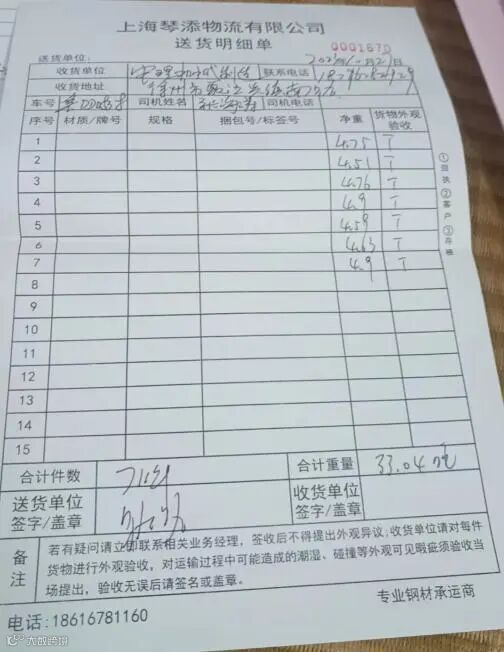 上海琴添物流有限公司
送货明细单
送货单位: 0001670
收货单位 联系电话
收货地址
车号 司机姓名 司机电话
序号 材质/牌号 规格 捆包号/标签号 净重 货物外观验收
1 4.75 T
2 4.51 T
3 4.76 T
4 4.9 T
5 4.59 T
6 4.63 T
7 4.9 T
8
9
10
11
12
13
14
15
①回执②客户③存根
合计件数 合计重量 33.04吨
送货单位 收货单位
签字/盖章 签字/盖章
备注
若有疑问请立即联系相关业务经理，签收后不得提出外观异议;收货单位请对每件
货物进行外观验收，对运输过程中可能造成的潮湿、碰撞等外观可见瑕疵须验收当
场提出，验收无误后请签名或盖章。
电话:18616781160 专业钢材承运商
大数跨境